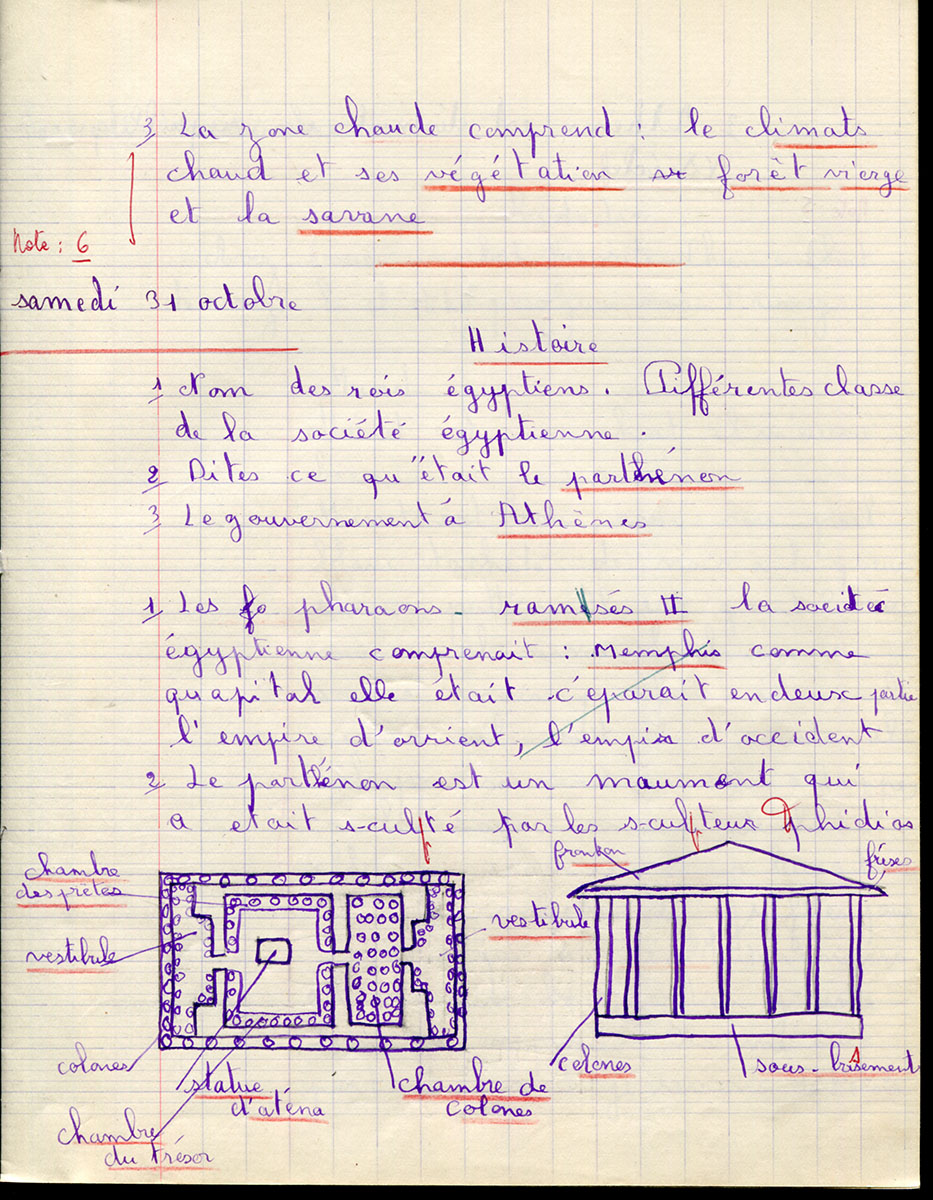 3 La zone chaude comprend : le climats
chaud et ses végétation forêt vierge
et la savane
Note : 6
samedi 31 octobre
Histoire
1 Nom des rois égyptiens. Différentes classe
de la société égyptienne.
2 Dites ce qu"était le parthénon
3 Le gouvernement à Athènes
1 Les pharaons - ramsés II la societé
égyptienne comprenait : Memphis comme
quapital elle était c'eparait en deux partie
l'empire d'orrient, l'empire d'occident
2 Le parthénon est un maument qui
a etait sculpté par les sculpteur Phidias
chambre
des prètes
vestibule
colones
chambre
du trésor
statue
d'aténa
chambre de
colones
vestibule
fronton
frises
colones
sous-brisement